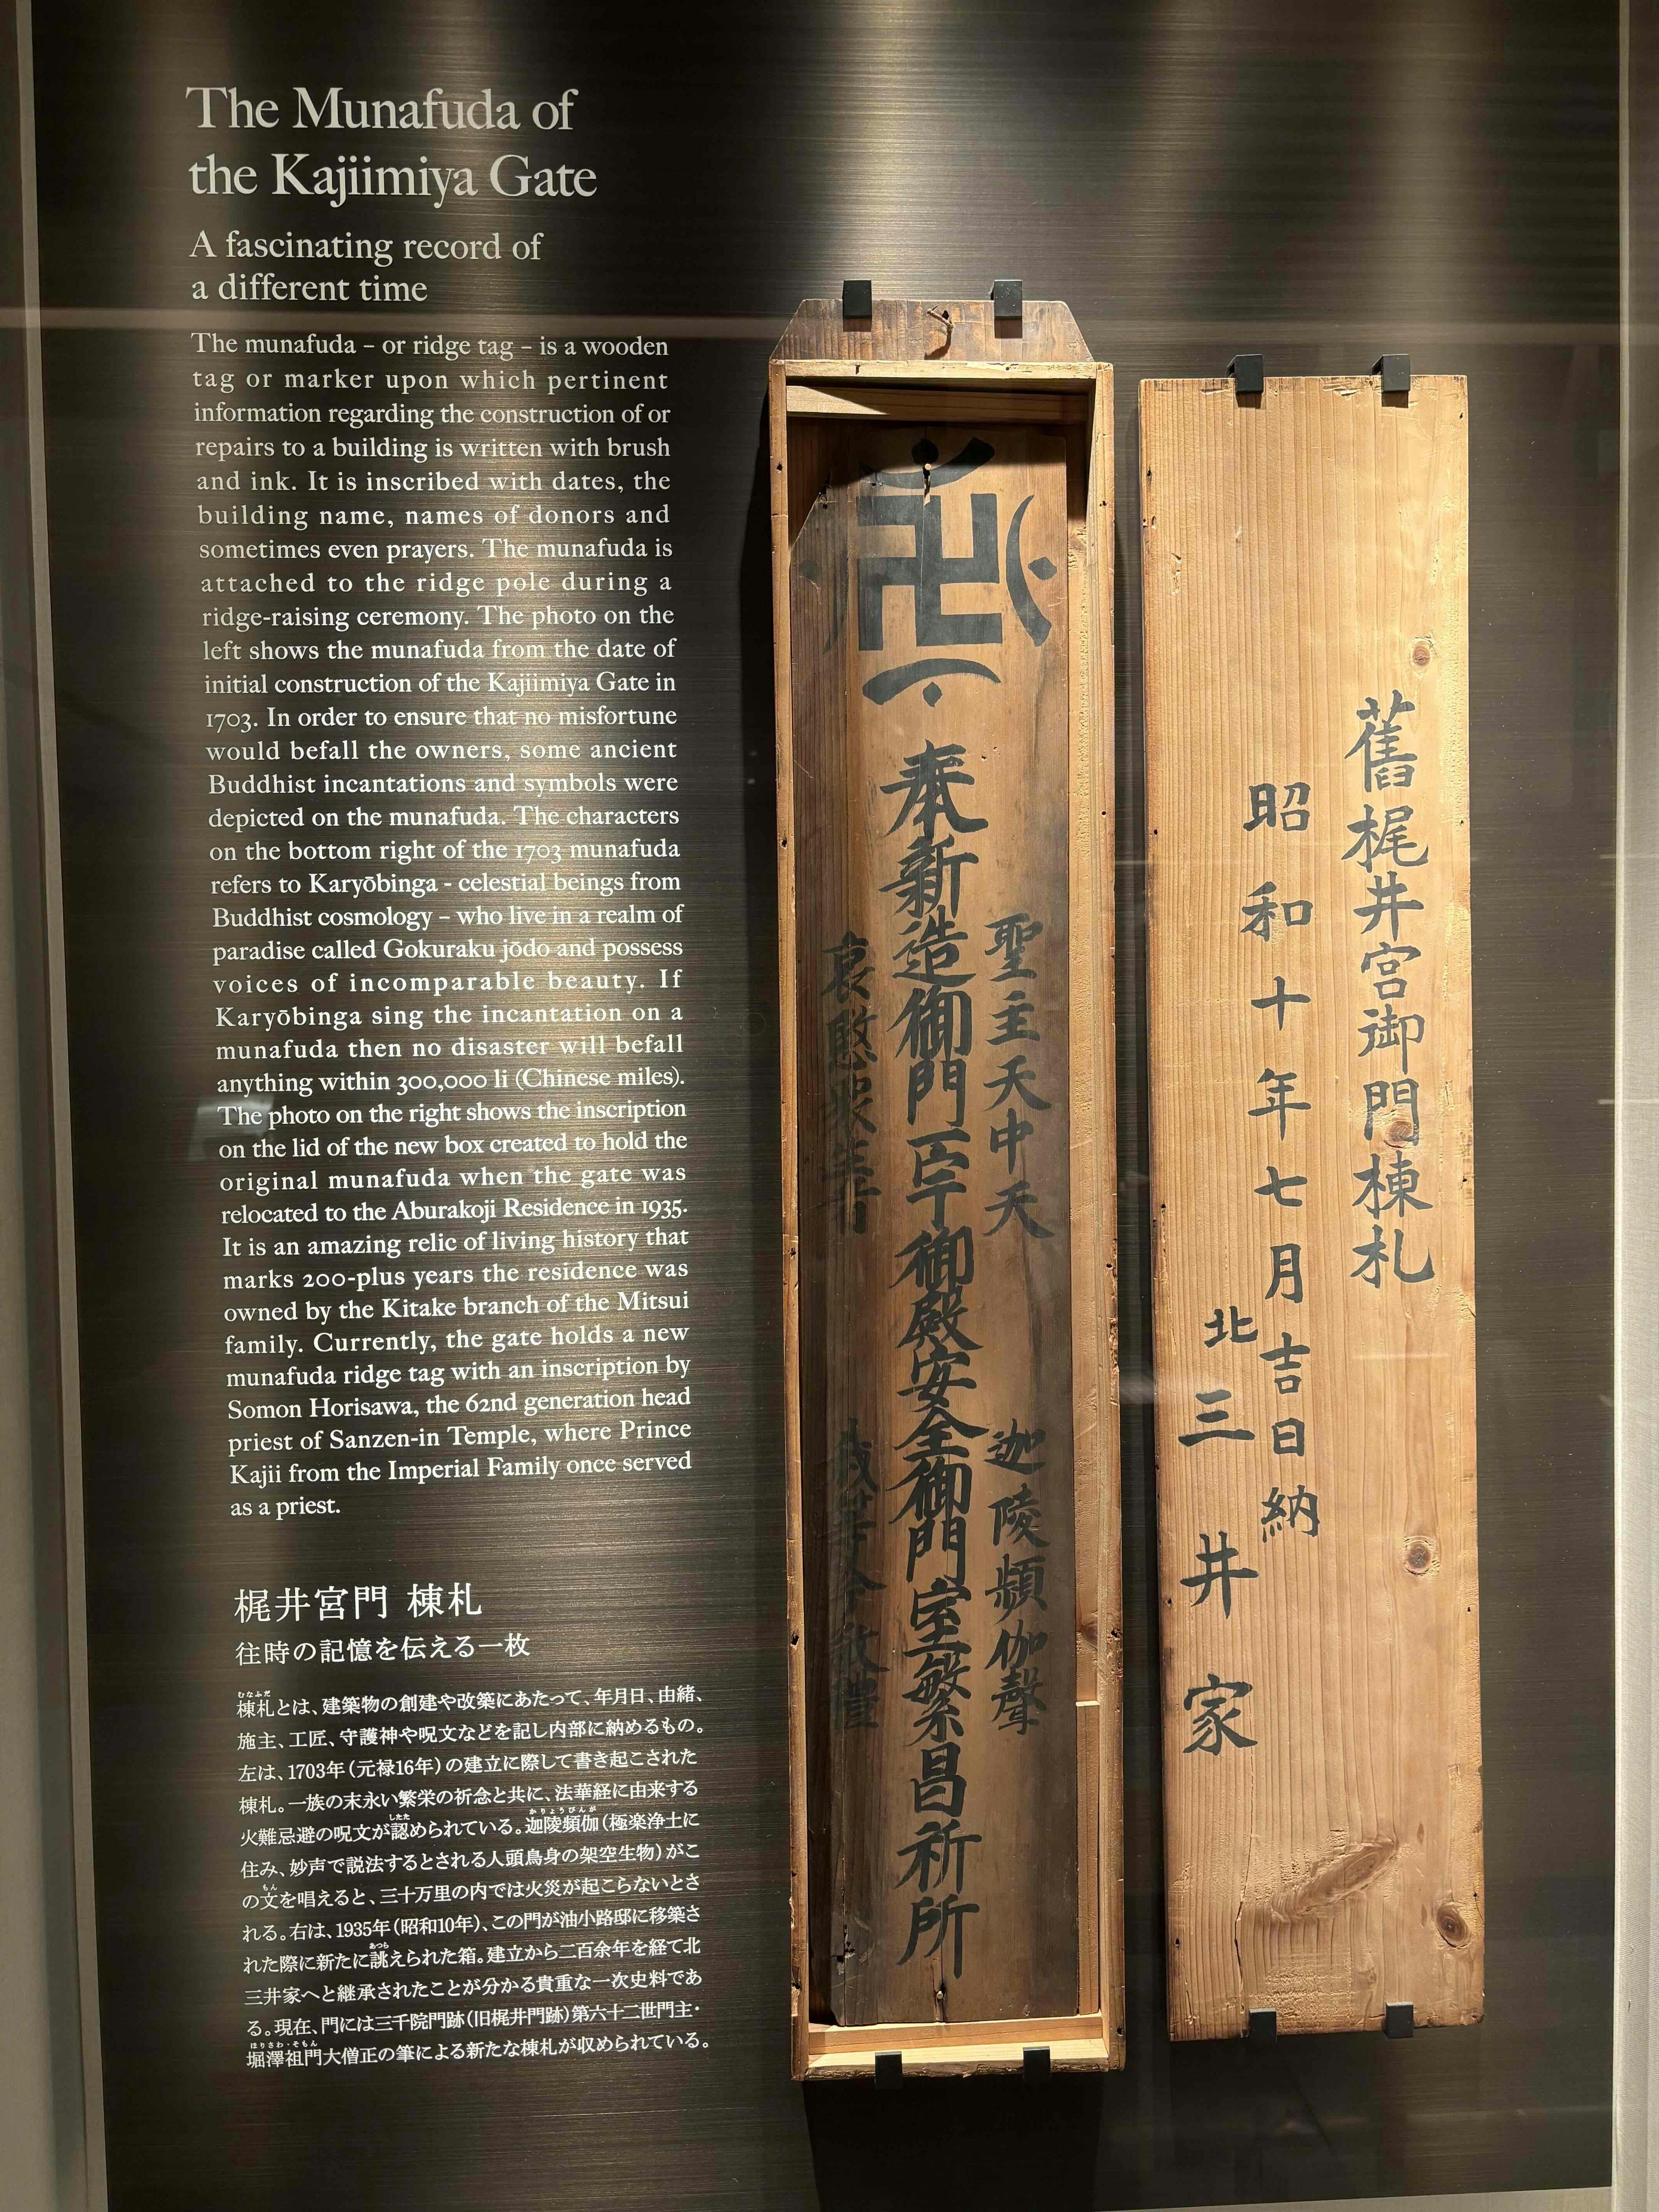 The Munafuda of
the Kajiimiya Gate
A fascinating record of
a different time
The munafuda – or ridge tag – is a wooden
tag or marker upon which pertinent
information regarding the construction of or
repairs to a building is written with brush
and ink. It is inscribed with dates, the
building name, names of donors and
sometimes even prayers. The munafuda is
attached to the ridge pole during a
ridge-raising ceremony. The photo on the
left shows the munafuda from the date of
initial construction of the Kajiimiya Gate in
1703. In order to ensure that no misfortune
would befall the owners, some ancient
Buddhist incantations and symbols were
depicted on the munafuda. The characters
on the bottom right of the 1703 munafuda
refers to Karyōbinga - celestial beings from
Buddhist cosmology – who live in a realm of
paradise called Gokuraku jōdo and possess
voices of incomparable beauty. If
Karyōbinga sing the incantation on a
munafuda then no disaster will befall
anything within 300,000 li (Chinese miles).
The photo on the right shows the inscription
on the lid of the new box created to hold the
original munafuda when the gate was
relocated to the Aburakoji Residence in 1935.
It is an amazing relic of living history that
marks 200-plus years the residence was
owned by the Kitake branch of the Mitsui
family. Currently, the gate holds a new
munafuda ridge tag with an inscription by
Somon Horisawa, the 62nd generation head
priest of Sanzen-in Temple, where Prince
Kajii from the Imperial Family once served
as a priest.
梶井宮門 棟札
往時の記憶を伝える一枚
むなふだ
棟札とは、建築物の創建や改築にあたって、年月日、由緒、
施主、工匠、守護神や呪文などを記し内部に納めるもの。
左は、1703年（元禄16年）の建立に際して書き起こされた
棟札。一族の末永い繁栄の祈念と共に、法華経に由来する
したた かりょうびんが
火難忌避の呪文が認められている。迦陵頻伽（極楽浄土に
住み、妙声で説法するとされる人頭鳥身の架空生物）がこ
もん
の文を唱えると、三十万里の内では火災が起こらないとさ
れる。右は、1935年（昭和10年）、この門が油小路邸に移築さ
あつら
れた際に新たに誂えられた箱。建立から二百余年を経て北
三井家へと継承されたことが分かる貴重な一次史料であ
る。現在、門には三千院門跡（旧梶井門跡）第六十二世門主・
ほりさわ・そもん
堀澤祖門大僧正の筆による新たな棟札が収められている。
卍
聖主天中天 迦陵頻伽聲
奉新造御門 御殿安全御門室繁昌祈所
哀愍衆生者 我等今敬禮
舊梶井宮御門棟札
昭和十年七月吉日納
北三井家